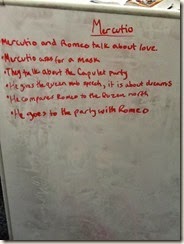 Mercutio
Mercutio and Romeo talk about love
• Mercutio asks for a mask
• They talk about the Capulet party
• He gives the queen mab speech, it is about dreams
• He compares Romeo to the Queen
• He goes to the party with Romeo